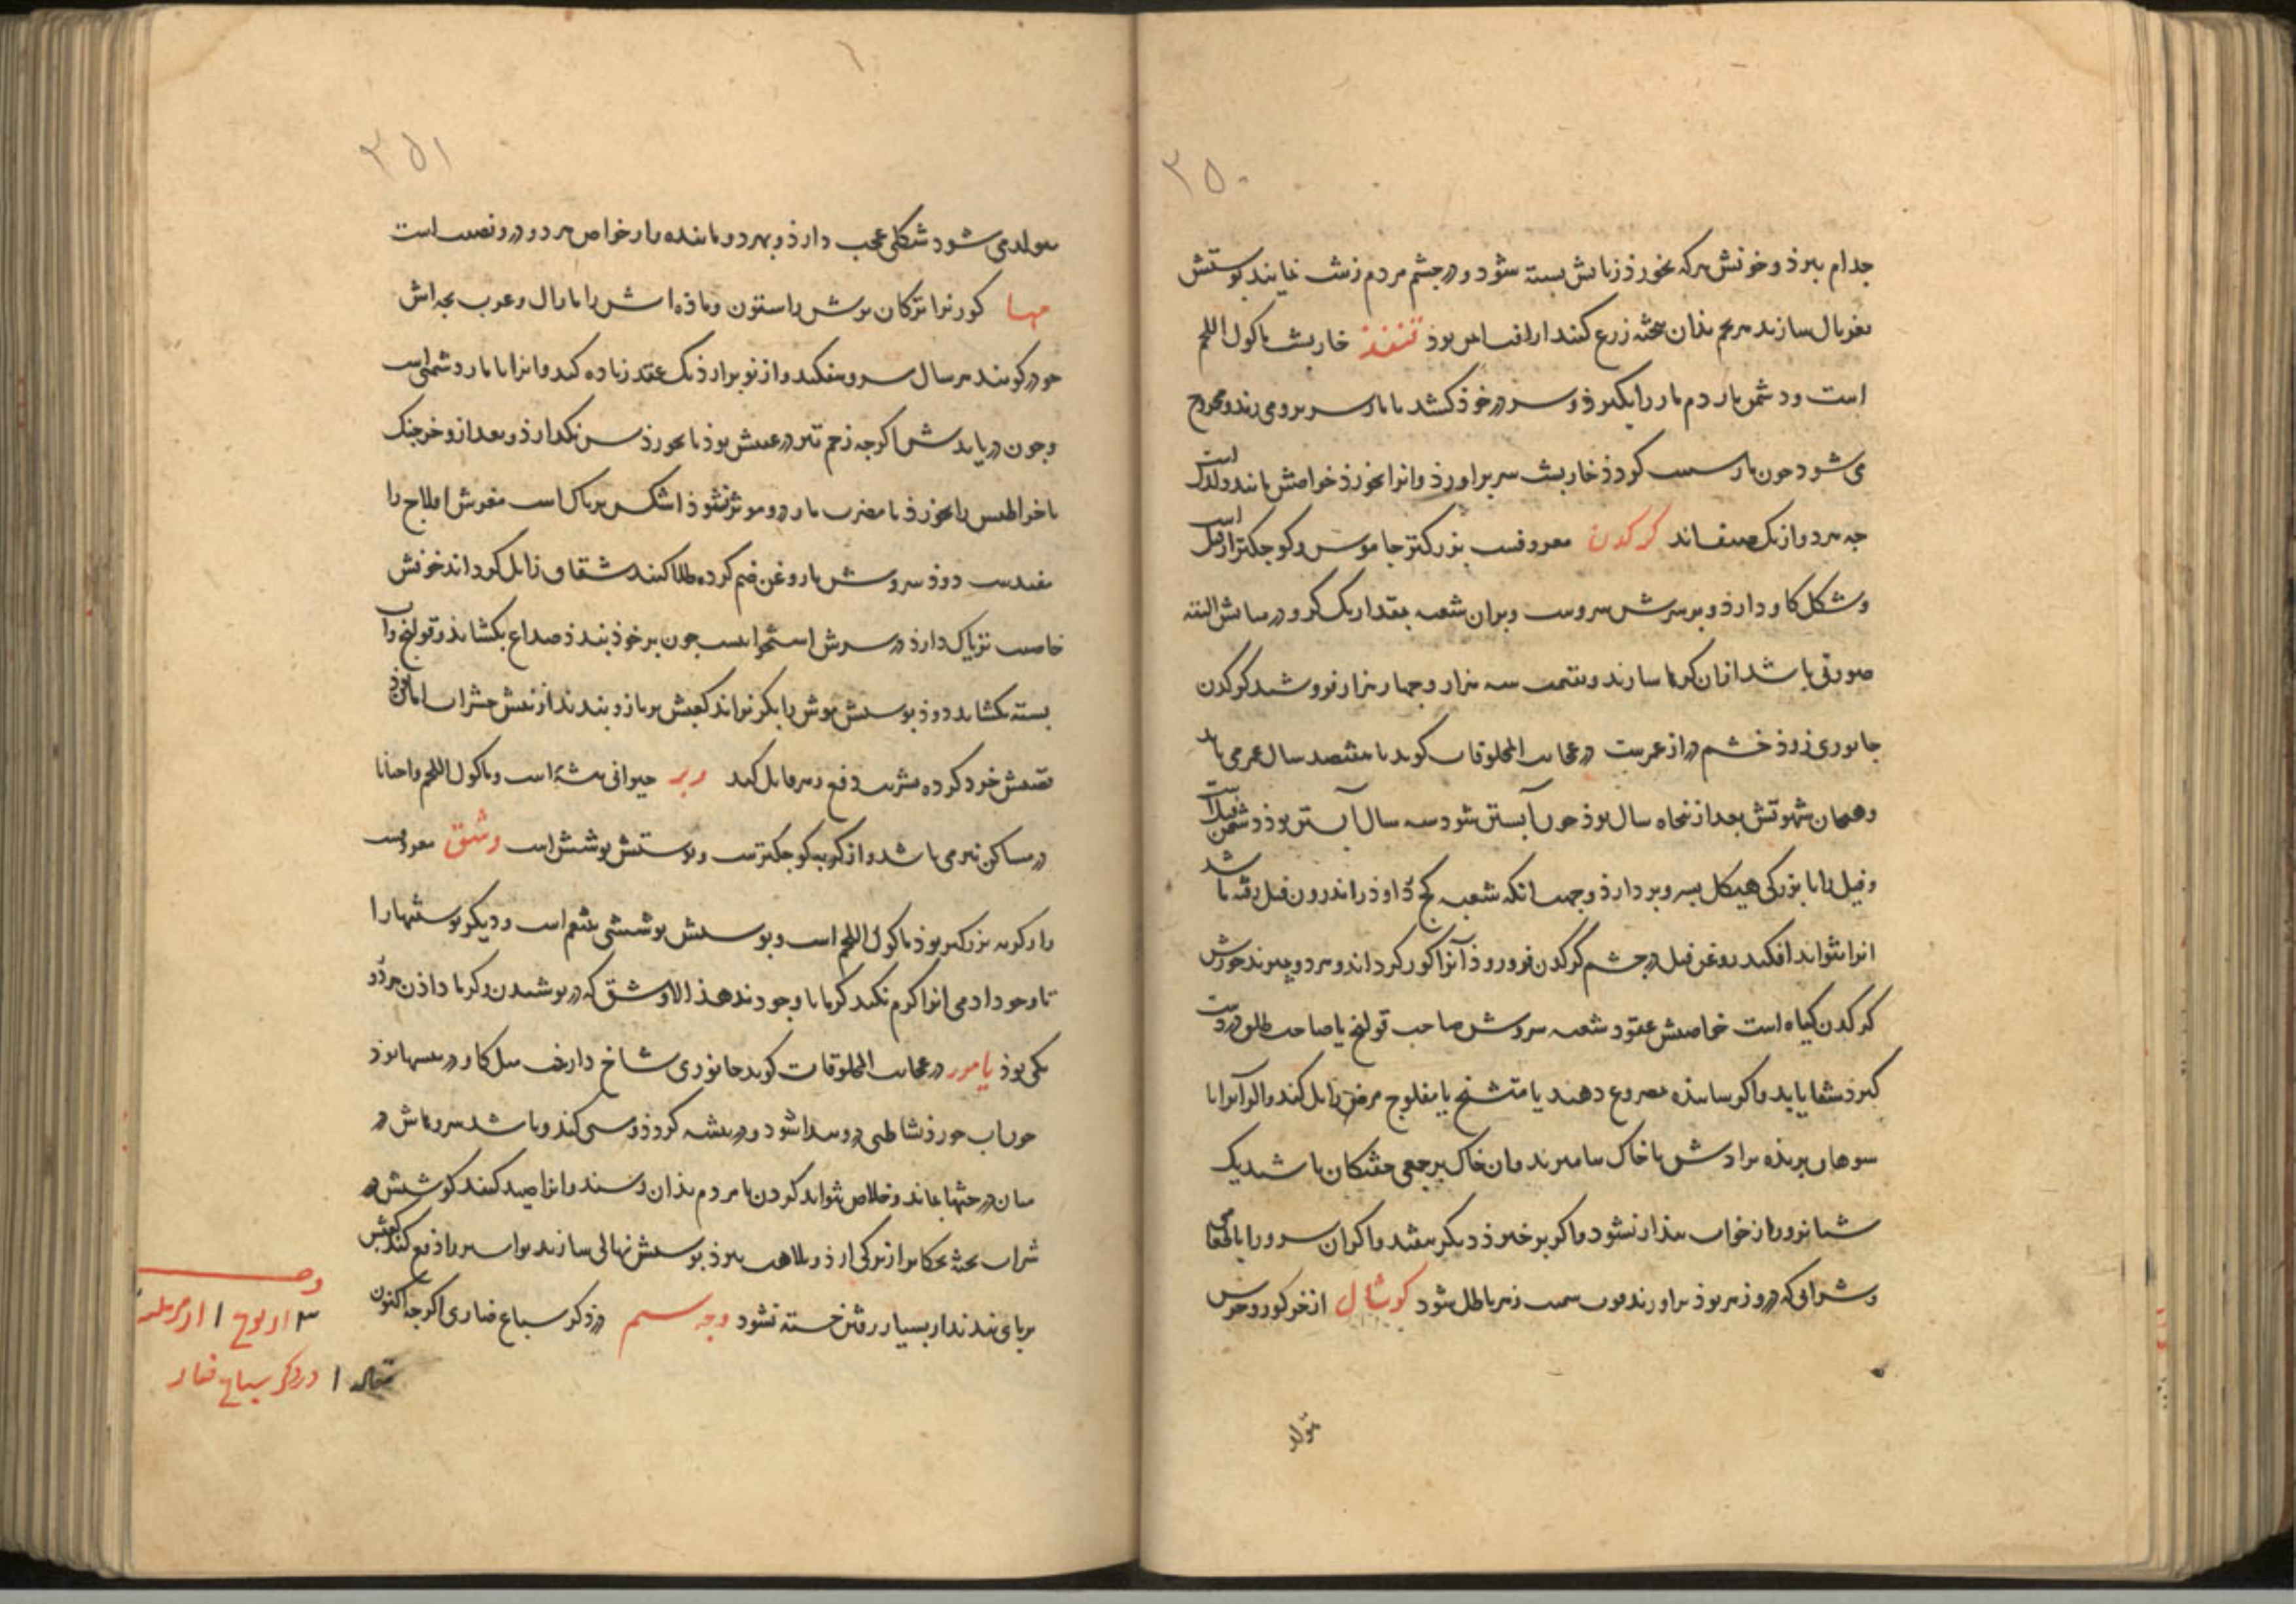 ۳۵۰
جذام ببرد و خونش هرکه بخورد زبانش بسته شود و در چشم مردم زشت نماید پوستش
غربال سازند هر تخم بذان پخته زرع کنند از افات ایمن بود قنفذ خارپشت ماکول اللحم
است و دشمن مار دم مار را بگیرد و سر در خود کشد تا مار سر برو می زند و مجروح
می شود چون مار سست گردد خارپشت سر براورد و انرا بخورد خواصش مانند دلدل است
چه هردو از یک صنف اند کرکدن معروفست بزرکتر جاموس و کوچکتر از فیل است
و شکل کاو دارد و بر سرش سروست و بران شعبه بمقدار یک کز و در میانش البته
صورتی باشد ازان کمرها سازند و بقیمت سه هزار و چهار هزار فروشند کرکدن
جانوری زود خشم دراز عمرست در عجایب المخلوقات کوید تا هفتصد سال عمر می یابد
و هیجان شهوتش بعد از پنجاه سال بود چون آبستن شود سه سال آبستن بود و دشمن فیل است
و فیل را با بزرکی هیکل بسرو بردارد و جهت انکه شعبه کج دارد و در اندرون فیل رفته باشد
انرا نتواند افکند روغن فیل در چشم کرکدن فرو رود آنرا کور کرداند و هر دو بمیرند خورش
کرکدن کیاه است خواصش عقود شعبه سروش صاحب قولنج یا صاحب طلق در دست
کیرد شفا یابد و اکر بسایند مصروع دهند یا متشنج یا مفلوج مرض زایل کند و اکر آنرا با
سوهان بریده برادش با خاک بیامیزند و ان خاک بر جمعی خفتکان باشند یک
شبانروز از خواب بیدار نشود و اکر برخیزد دیکر بیفتد و اکر ان سرو را با
و شرابی که درو زهر بود براورند سمیت زهر باطل شود کوشال از خر کور و خرس
متولد
۳۵۱
متولد می شود شکلی عجب دارد و بهردو ماننده باز خواص هر دو درو نصیب است
مها کوزنرا ترکان نرش را ستون و ماده اش را مارال و عرب بچه اش
جوذر کویند هر سال سرو بیفکند و از نو برارد یک عقد زیاده کند و انرا با مار دشمنی است
و چون دریابدش اکرچه زخم تیر در عقبش بود تا نخورد نکذارد و بعد ازو خرچنک
یا خراطین را بخورد تا مضرت مار درو موثر نشود اشکش تریاک است مغزش افلاج را
مفیدست دود سروش با روغن ضم کرده طلا کنند شقاق زایل کرداند خونش
خاصیت تریاک دارد در سرش استخوانیست چون بر خود بندند صداع بکشاند و قولنج و آب
بسته بکشاید دود پوستش موش را بکریزاند کعبش بر بازو بندند از نیش حشرات امان بود
قضیبش خرد کرده بشربت دفع زهر قاتل کند وبر حیوانی بیشه است و ماکول اللحم و احیانا
در مساکن نیز می باشد و از کربه کوچکترست و پوستش پوشش است وشق معروفست
و از کربه بزرکتر بود ماکول اللحم است و پوستش پوششی نعم است و دیکر پوستها را
تا وجود ادمی انرا کرم نکند کرما با وجود ندهد الا وشق که در پوشیدن و کرما دادن هردو
یکی بود یامور در عجایب المخلوقات کوید جانوری شاخ دارست مثل کاو در بیشها بود
چون اب خورد نشاطی درو پیدا شود و در بیشه کردد و سعی کند و باشد سروهاش در
میان درختها بماند و خلاص نتواند کردن تا مردم بذان رسند و انرا صید کنند کوشتش در
شراب پخته بکار برند از ترکی ارد و بلاهت ببرد پوستش نهالی سازند بواسیر را دفع کند کعبش
بر پای بندند از بسیار رفتن خسته نشود وجه سیم در ذکر سباع ضاری اکرچه اکنون
در ذکر سباع ضار